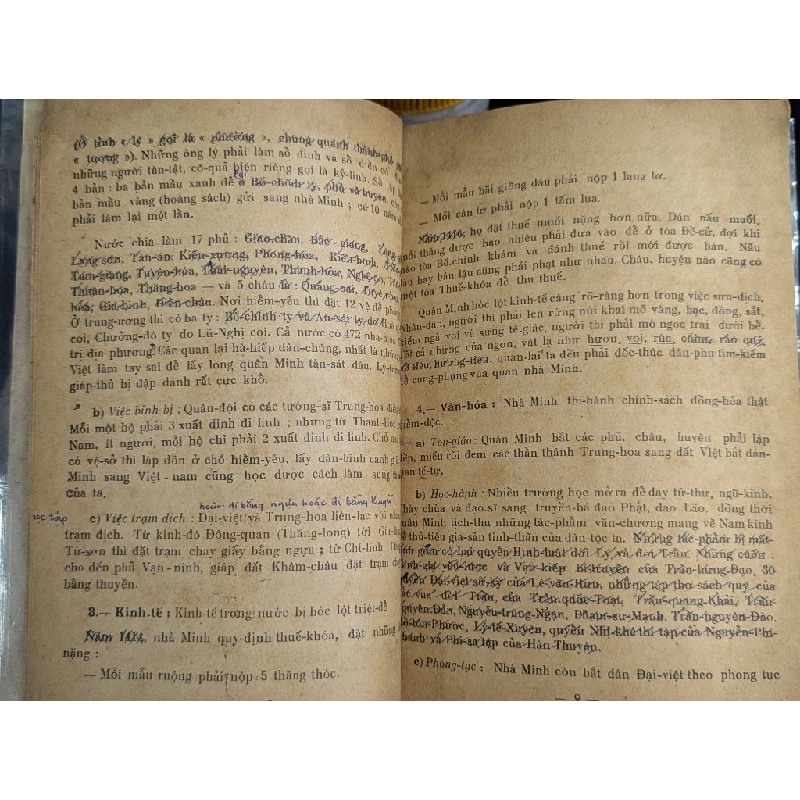 (Ở tỉnh « ly » gọi là « phường », chung quanh thành phố
« tương »). Những ông lý phải làm sổ đinh và sổ điền có
những người tàn-tật, cô-quả biên riêng gọi là kỳ-linh. Sổ
4 bản : ba bản mầu xanh để ở Bố-chính ty, phủ và huyện, còn
bản mầu vàng (hoàng sách) gửi sang nhà Minh ; cứ 10 năm
phải làm lại một lần.
Nước chia làm 17 phủ : Giao-châu, Bắc giang,
Lạng-sơn, Tân-an, Kiến-xương, Phong-hóa, Kiến-bình,
Tam-giang, Tuyên-hóa, Thái-nguyên, Thanh-hóa, Nghệ-an,
Thuận-hóa, Thăng-hoa — và 5 châu là : Quảng-oai,
hóa, Gia-bình, Diễn-châu. Nơi hiểm-yếu thì đặt 12 vệ để phòng
Ở trung-ương thì có ba ty : Bố-chính ty và Án-sát ty do
coi, Chưởng-đô ty do Lữ-Nghị coi. Cả nước có 472 nha-môn
trị địa phương. Các quan lại hà-hiếp dân-chúng, nhất là những
Việt làm tay sai để lấy long quân Minh tàn-sát dân. Ly-trưởng
giáp-thủ bị đập đánh rất cực khổ.
b) Việc binh-bị : Quân-đội co các tướng-sĩ Trung-hoa điều
Mỗi một hộ phải 3 xuất đinh đi linh ; nhưng từ Thanh-Hóa
Nam, ít người, mỗi hộ chỉ phải 2 xuất đinh đi linh. Chỗ nào
có vệ-sở thì lập đồn ở chỗ hiểm-yếu, lấy dân-binh canh gi
Minh sang Việt-nam cũng học được cách làm súng
của ta.
hoặc đi bằng ngựa hoặc đi bằng thuyền
c) Việc trạm dịch : Đại-việt và Trung-hoa liên-lạc với nhau
trạm dịch. Từ kinh-đô Đông-quan (Thăng-long) tới
Từ-sơn thì đặt trạm chạy giấy bằng ngựa ; từ Chi-linh
cho đến phủ Vạn-ninh, giáp đất Khâm-châu đặt trạm
bằng thuyền.
3.— Kinh-tế : Kinh-tế trong nước bị bóc lột triệt-để
Năm 1414, nhà Minh quy-định thuế-khóa, đặt những
nặng :
— Mỗi mẫu ruộng phải nộp 5 thăng thóc.
— Mỗi mẫu bãi giồng dâu phải nộp 1 lạng tơ.
— Mỗi cân tơ phải nộp 1 tấm lụa.
Năm 1416, họ đặt thuế muối nặng hơn nữa. Dân nấu muối,
mỗi tháng được bao nhiêu phải đưa vào để ở tòa Đề-cử, đợi khi
nào tòa Bố-chính khám và đánh thuế rồi mới được bán. Nếu
nấu hay bán lậu cũng phải phạt như nhau. Châu, huyện nào cũng có
một tòa Thuế-khóa để thu thuế.
Quân Minh bóc lột kinh-tế càng rõ-ràng hơn trong việc sưu-dịch.
Nhân-dân, người thì phải lên rừng núi khai mỏ vàng, bạc, đồng, sắt,
kiếm ngà voi và sừng tê-giác, người thì phải mò ngọc trai dưới bể.
Tất cả những của ngon, vật lạ như hươu, voi, rùa, chim, rắn quý,
hồ tiêu, hương-tiêu, quan-lại ta đến phải đốc-thúc dân-phu tìm-kiếm
để cung-phọng vua quan nhà Minh.
4.— Văn-hóa : Nhà Minh thi-hành chính-sách đồng-hóa thật
thiểm-độc.
a) Tôn-giáo : Quân Minh bắt các phủ, châu, huyện phải lập
đền, miếu rồi đem các thần thánh Trung-hoa sang đất Việt bắt dân-
gian tế-tự.
b) Học-hành : Nhiều trường học mở ra để dạy tứ-thư, ngũ-kinh,
thầy chùa và đạo-sĩ sang truyền-bá đạo Phật, đạo Lão, đồng thời
nhà Minh tịch-thu những tác-phẩm văn-chương mang về Nam kinh
để thủ-tiêu gia-sản tinh-thần của dân-tộc ta. Những tác phẩm bị mất-
mát gồm có hai quyển Hình-luật đời Lý và đời Trần. Những cuốn :
Binh-gia yếu-lược và Vạn kiếp bí-truyền của Trần-hưng-Đạo, 30
quyển Đại-việt sử-ký của Lê-văn-Hưu, những tập thơ sách quý của
các vua đời Trần, của Trần-quốc-Toại, Trần-quang-Khải, Trần
Nguyên-Đán, Nguyễn-trung-Ngạn, Phạm-sư-Mạnh, Trần-nguyên-Đào,
Hồ-tôn-Phước, Lý-tế-Xuyên, quyển Nhị-khê thi tập của Nguyễn-Phi-
Khanh và Phi-sa tập của Hàn-Thuyên.
c) Phong-tục : Nhà Minh còn bắt dân Đại-việt theo phong tục
9